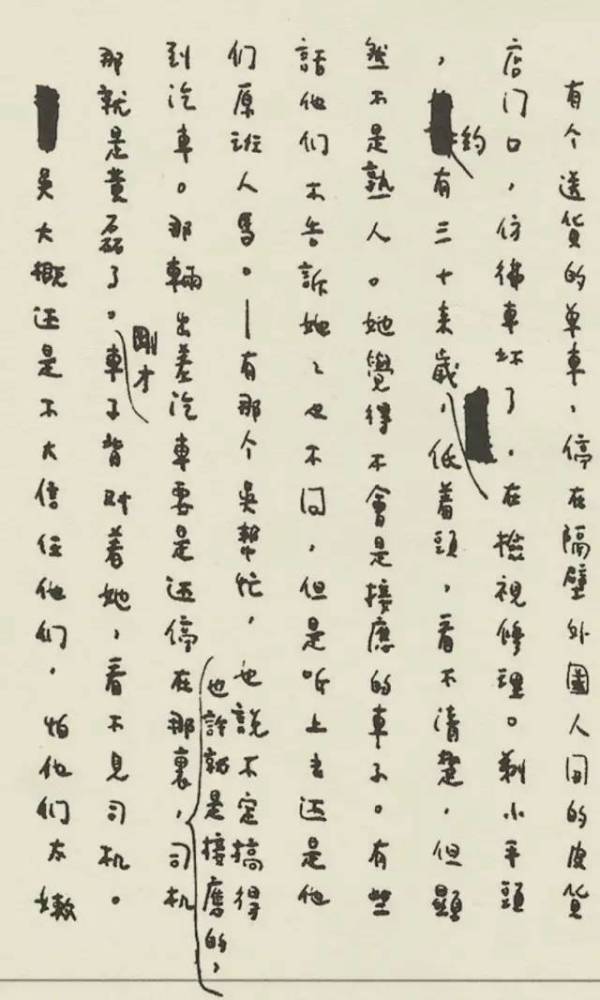 有个送貨的单車,停在隔壁外國人開的皮貨
店门口,仿彿車坏了,在檢視修理。剃小平頭
,約有三十来歲,低着頭,看不清楚,但顯
然不是熟人。她覺得不會是接應的車子。有些
話他们不告訴她〻也不问,但是听上去还是他
们原班人馬。—有那个吳幫忙,也說不定搞得
到汽車。那輛出差汽車要是还停在那裏,也許就是接應的,司机
那就是黃磊了。剛才車子背对着她,看不見司机。
吳大概还是不大信任他们,怕他们太嫩